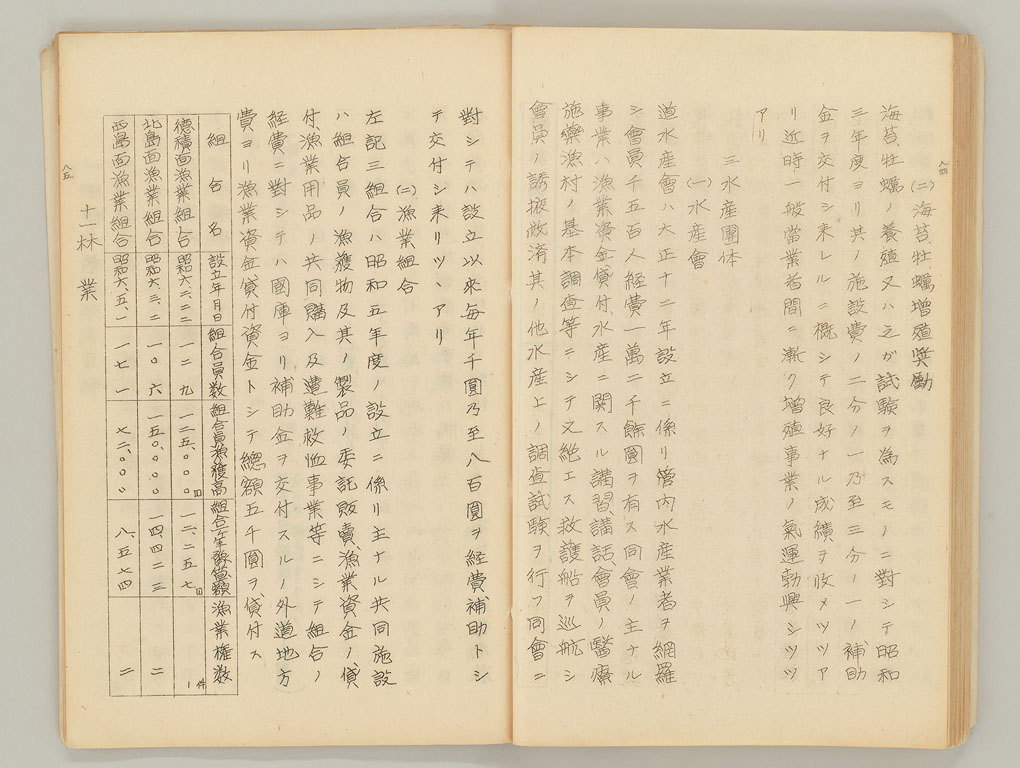 八四
(二)海苔、牡蠣增殖奬勵
海苔牡蠣ノ養殖又ハ之ガ試驗ヲ爲スモノニ對シテ昭和
三年度ヨリ其ノ施設費ノ二分ノ一乃至三分ノ一ノ補助
金ヲ交付シ來レルニ概シテ良好ナル成績ヲ收メツツア
リ近時一般當業者間ニ漸ク增殖事業ノ氣運勃興シツツ
アリ
三水産團体
(一)水産會
道水産會ハ大正十二年設立ニ係リ管內水産業者ヲ網羅
シ會員千五百人經費一萬二千餘圓ヲ有ス同會ノ主ナル
事業ハ漁業資金貸付、水産ニ関スル講習講話會員ノ醫療
施藥漁村ノ基本調查等ニシテ又絕エス救護船ヲ巡航シ
會員ノ誘掖救濟其ノ他水産上ノ調查試驗ヲ行フ同會ニ
對シテハ設立以來每年千圓乃至八百圓ヲ経費補助トシ
テ交付シ来リツヽアリ
(二)漁業組合
左記三組合ハ昭和五年度ノ設立ニ係リ主ナル共同施設
ハ組合員ノ漁獲物及其ノ製品ノ委託販賣、漁業資金ノ貸
付、漁業用品ノ共同購入及遭難救恤事業等ニシテ組合ノ
経費ニ對シテハ國庫ヨリ補助金ヲ交付スルノ外道地方
費ヨリ漁業資金貸付資金トシテ總額五千圓ヲ貸付ス
組合名 設立年月日 組合員数 組合員漁獲高 漁業権数
德積面漁業組合 昭和六、二、二 一二九 一二五、〇〇〇円 一二、二五七円 1件
北島面漁業組合 昭和六、三、二 一〇六 一五〇、〇〇〇 一四、四二三 二
西島面漁業組合 昭和六、五、一 一七一 七二、〇〇〇 八、五七四 二
十一林業
八五